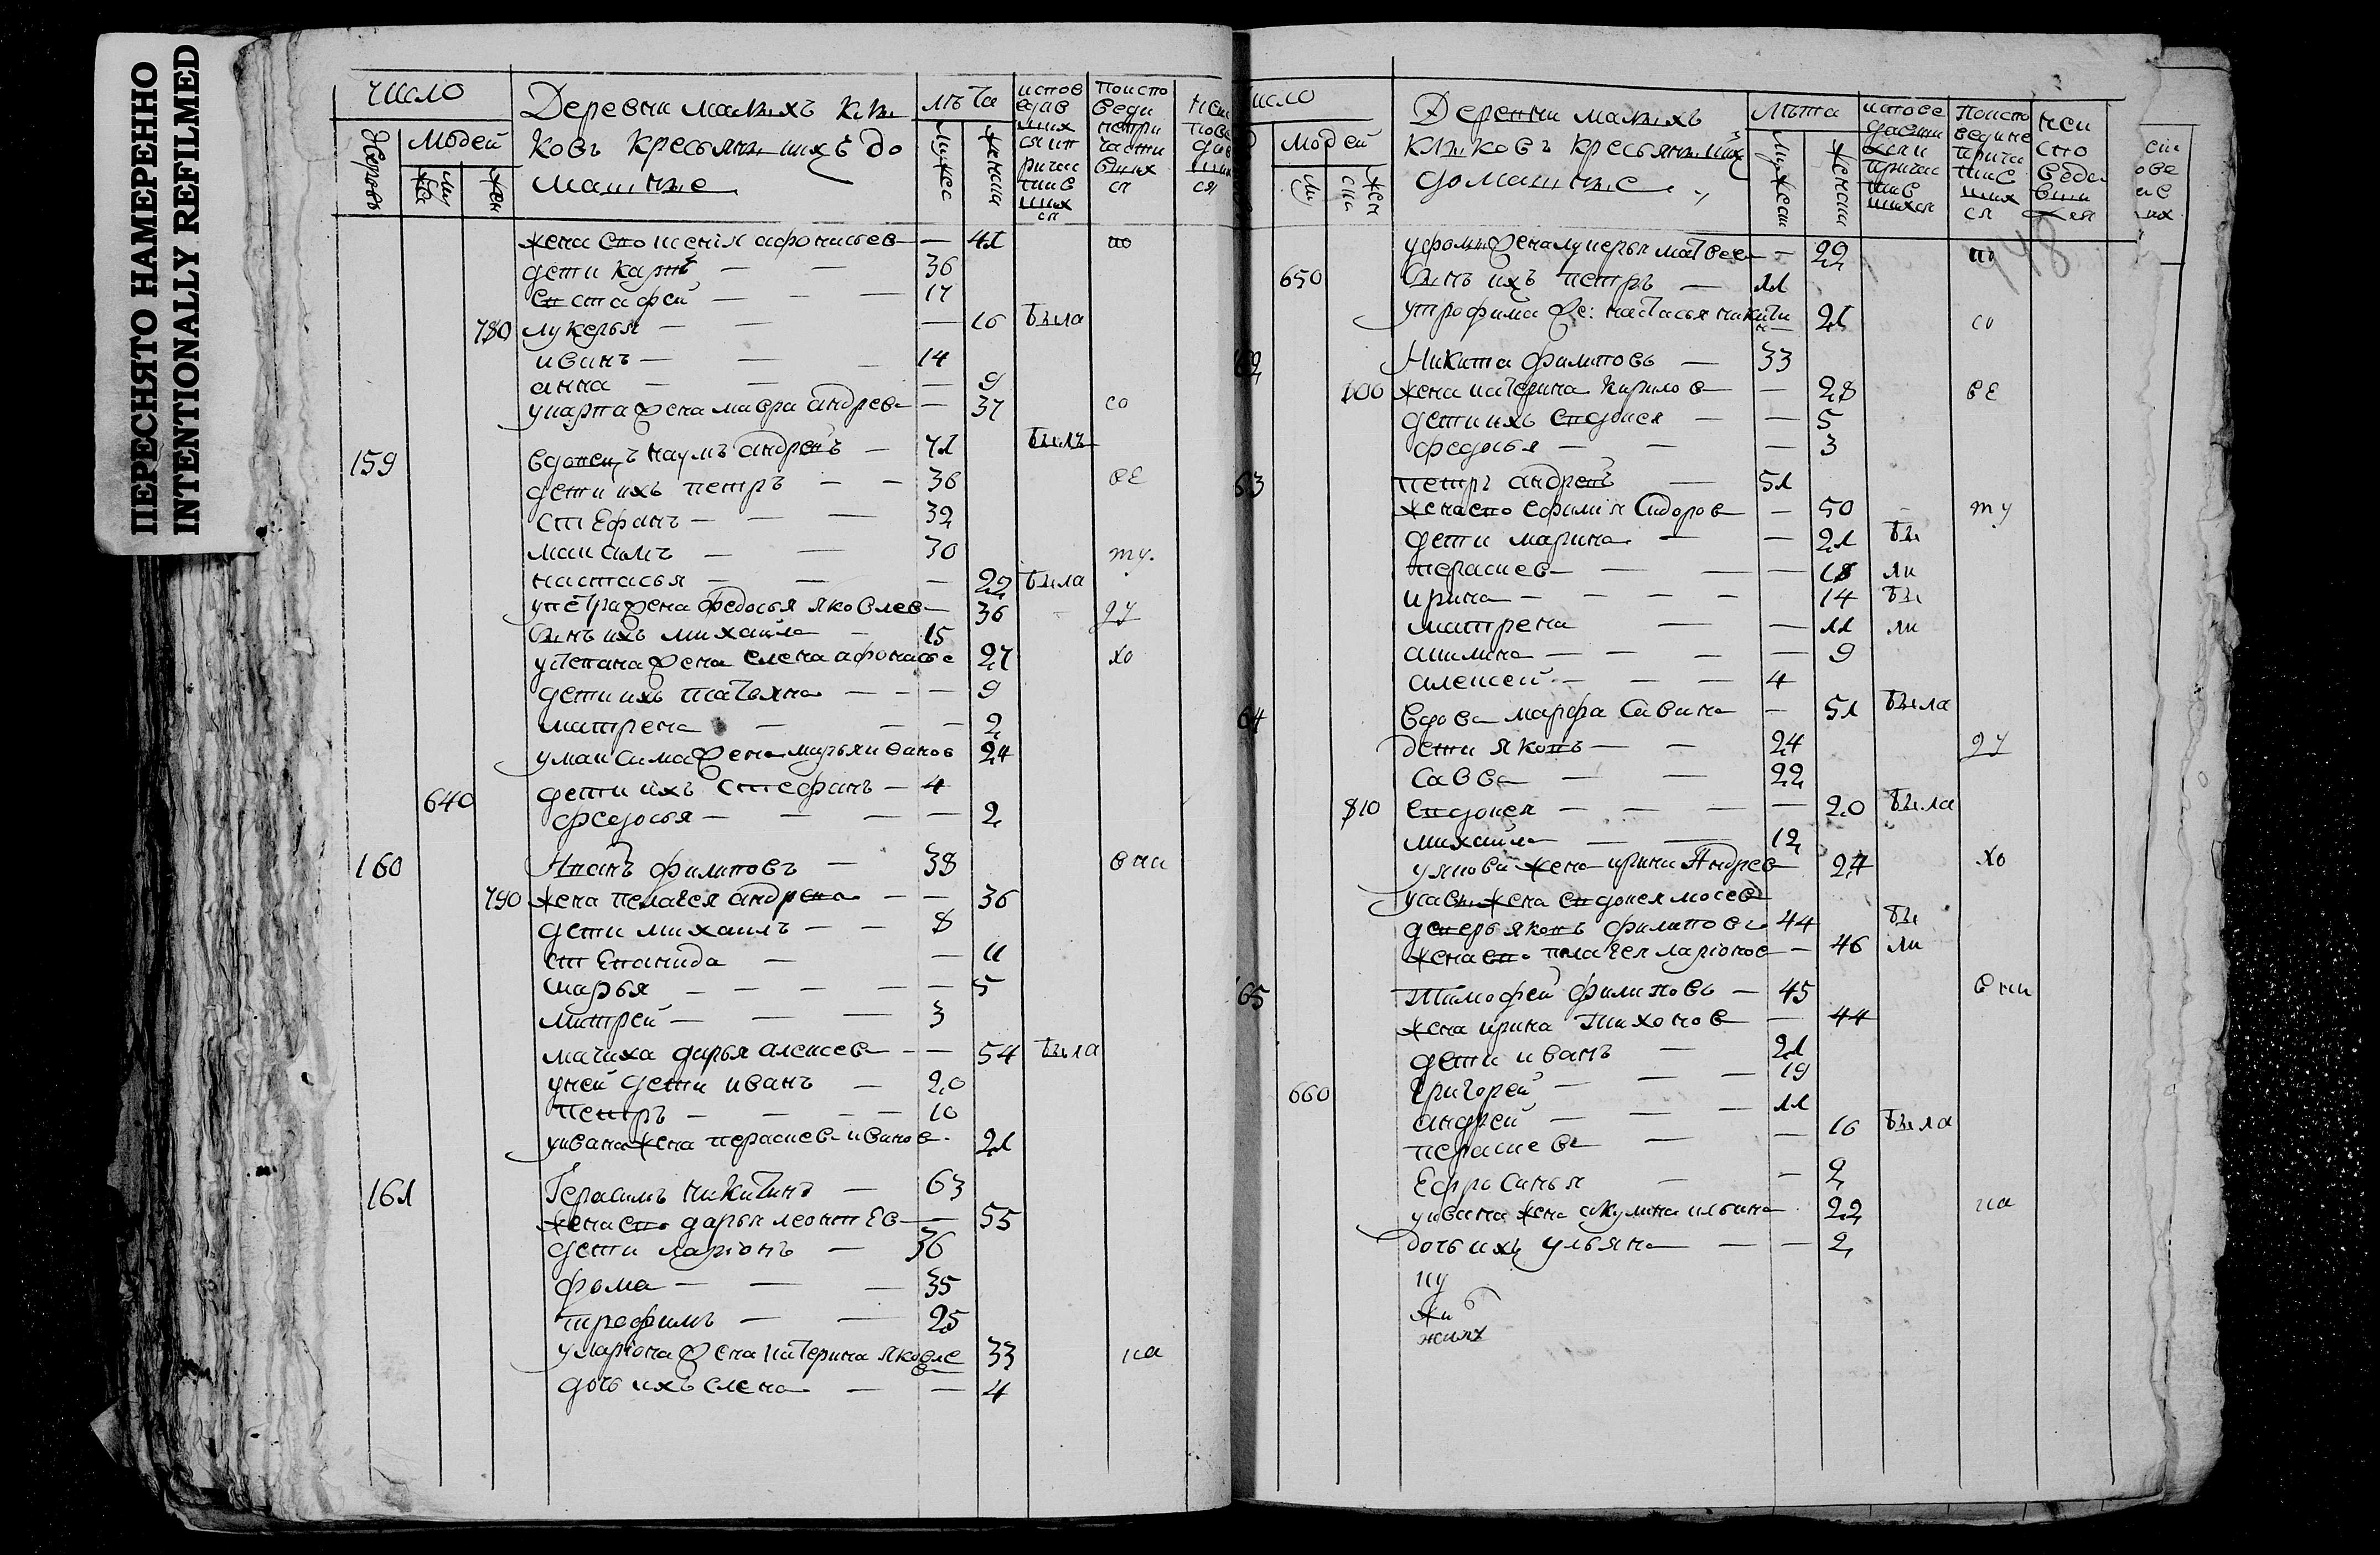 ПЕРЕСНЯТО НАМЕРЕННО
INTENTIONALLY REFILMED
число
Дворовъ
людей
муже
жен
Деревни малыхъ клы
ковъ крестьяны ихъ до
машные
лѣта
мужес
женски
жена ево ксенiя афонасьев 41 по
дети карпъ 36
естафей 17
780 лукерья 16 была
иванъ 14
анна 9
укарпа жена мавра андрев 37 со
159 вдовецъ наумъ андревъ 71 былъ
дети ихъ петръ 36 ве
стефанъ 32
максимъ 30 ту
настасья 22 была
упетра жена федосья яковлев 36 ду
сынъ ихъ михаила 15
устепана жена елена афонасье 27 хо
дети ихъ татьяна 9
матрена 2
умаксима жена марья иванов 24
640 дети ихъ стефанъ 4
федосья 2
160 Иванъ филиповъ 38 вни
790 жена пелагея андрева 36
дети михаилъ 8
степанида 11
марья 5
митрей 3
мачиха дарья алексев 54 была
уней дети иванъ 20
петръ 10
уивана жена параскев иванов 21
161 Герасимъ никитинъ 63
жена ево дарья леонтев 55
дети ларiонъ 36
фома 35
трофимъ 25
уларiона жена катерина яковле 33 ка
дочь ихъ елена 4
число
людей
Деревни малыхъ
клыковъ крестьяны ихъ
домашные
лѣта
мужеск
женски
948
уфомы жена лукерья матвее 22 по
650 сынъ ихъ петръ 11
утрофима же: настасья никити 21 со
62 Никита филиповъ 33
800 жена катерина кирилов 28 ве
дети ихъ евдокея 5
федосья 3
63 петръ андревъ 51
жена ево ефимiя сидоров 50 ту
дети марина 21 бы
параскев 18 ли
ирина 14 бы
матрена 11 ли
акилина 9
алексей 4
64 вдова марфа савина 51 была
дети яковъ 24 ду
савва 22
810 евдокея 20 была
михаила 12
уякова жена ирина Андрев 24 хо
усавы жена евдокея мосев
деверь яковъ филиповъ 44 бы
жена ево пелагея ларiонов 46 ли
65 Тимофей филиповъ 45 вни
жена ирина Тихонов 44
дети иванъ 21
660 григорей 19
андрей 11
параскева 16 была
Ефросинья 2
уивана жена акулина ильина 22 ка
дочь ихъ ульяна 2